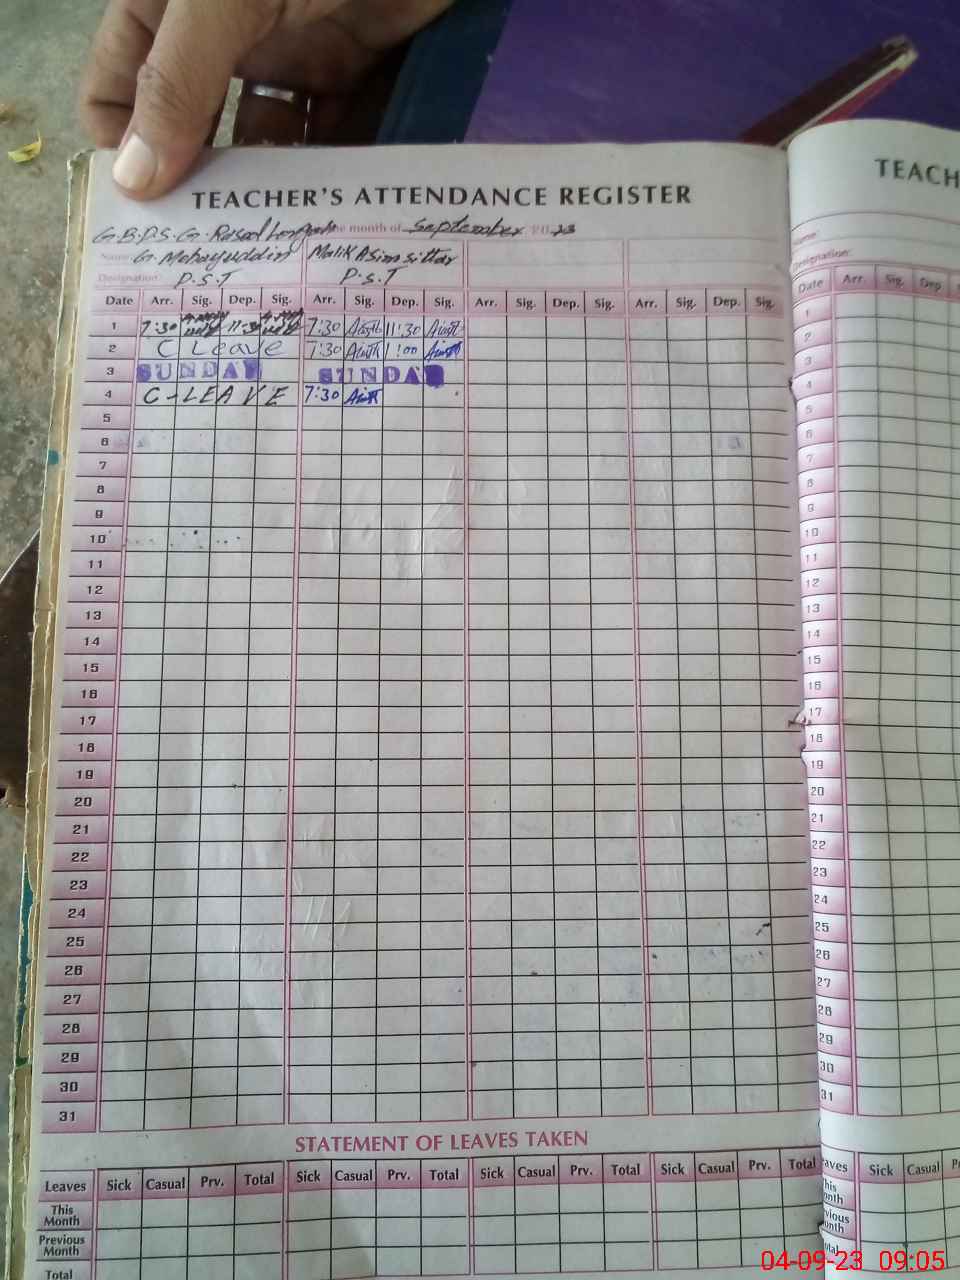 TEACHER'S ATTENDANCE REGISTER
G.B.P.S. G. Rasool the month of September 2023
Name: G. Mohayuddin Malik Asim sittar
Designation: P.S.T P.S.T
Date Arr. Sig. Dep. Sig. Arr. Sig. Dep. Sig. Arr. Sig. Dep. Sig. Arr. Sig. Dep. Sig.
1 7:30 11:30 7:30 11:30
2 C Leave 7:30 1:00
3 SUNDAY SUNDAY
4 C-LEAVE 7:30
5
6
7
8
9
10
11
12
13
14
15
16
17
18
19
20
21
22
23
24
25
26
27
28
29
30
31
STATEMENT OF LEAVES TAKEN
Leaves Sick Casual Prv. Total Sick Casual Prv. Total Sick Casual Prv. Total Sick Casual Prv. Total
This Month
Previous Month
Total
TEACH
Name:
Designation:
Date Arr. Sig. Dep
1
2
3
4
5
6
7
8
9
10
11
12
13
14
15
16
17
18
19
20
21
22
23
24
25
26
27
28
29
30
31
eaves Sick Casual
his onth
vious onth
otal
04-09-23 09:05